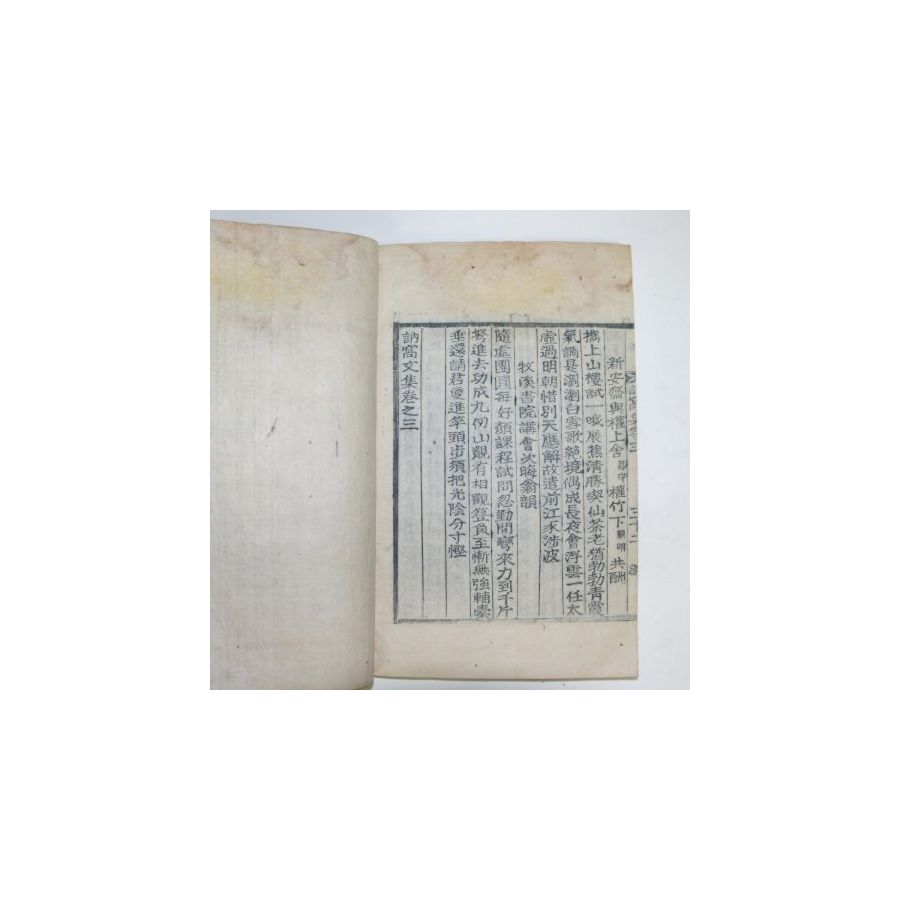 新安齋與權上舍昌宇權竹下顯明共酬
携上山樓試一哦展蕉清勝喫仙茶老猶勃勃靑霞
氣調是瀏瀏白雪歌絶境偶成長夜會浮雲一任太
虛過明朝惜別天應解故遣前江不涉波
牧溪書院講會次晦翁韻
隨處團圓每好顔課程試問忽動間寶來力到千斤
努進去功成九仞山覿有相觀登負至慚無強輔槖
垂還請君更進竿頭步須把光陰分寸慳
訥窩文集卷之三